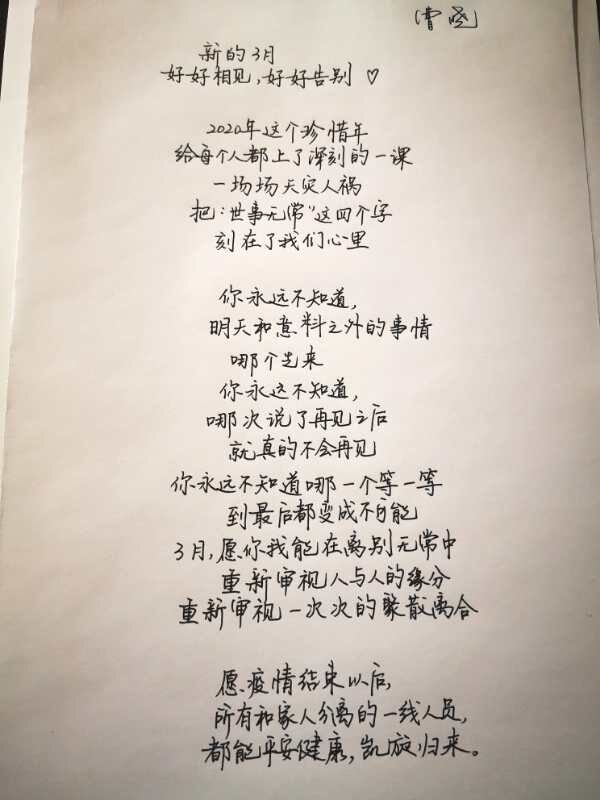 曹	晓
新的3月
好好相见,好好告别 ♡
2020年这个珍惜年
给每个人都上了深刻的一课
一场场天灾人祸
把:世事无常"这四个字
刻在了我们心里
你永远不知道,
明天和意料之外的事情
哪个先来
你永远不知道,
哪次说了再见之后
就真的不会再见
你永远不知道哪一个等一等
到最后都变成不可能
3月,愿你我能在离别无常中
重新审视人与人的缘分
重新审视一次次的聚散离合
愿疫情结束以后,
所有和家人分离的一线人员,
都能平安健康,凯旋归来。